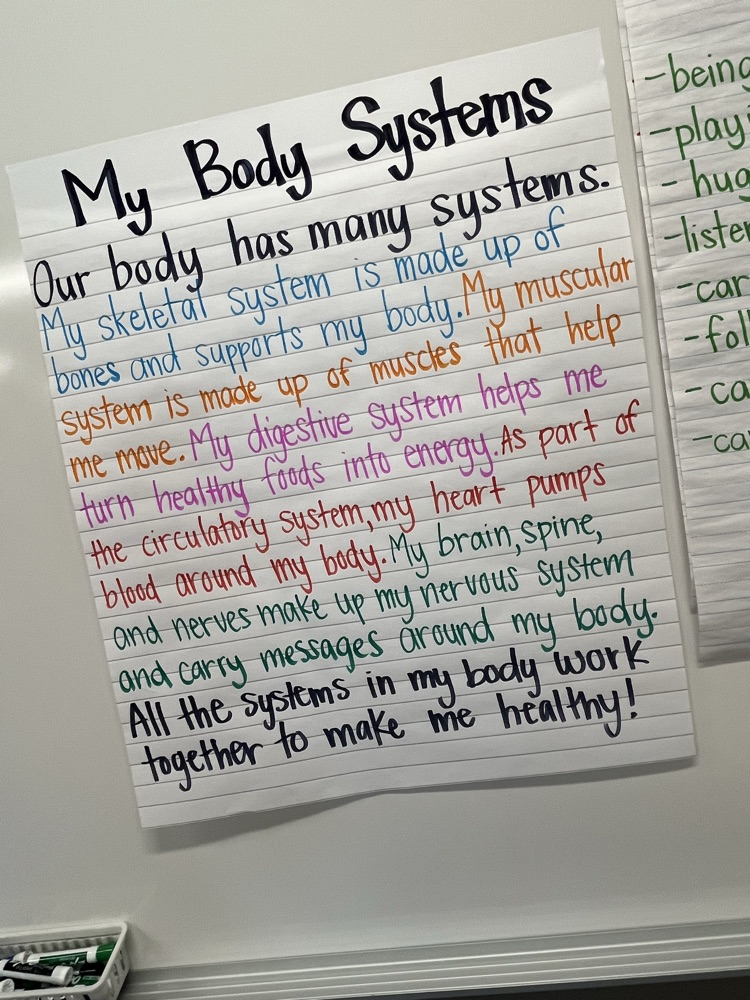 My Body Systems
Our body has many systems.
My skeletal system is made up of
bones and supports my body. My muscular
system is made up of muscles that help
me move. My digestive system helps me
turn healthy foods into energy. As part of
the circulatory system, my heart pumps
blood around my body. My brain, spine,
and nerves make up my nervous system
and carry messages around my body.
All the systems in my body work
together to make me healthy!
-being
- hug